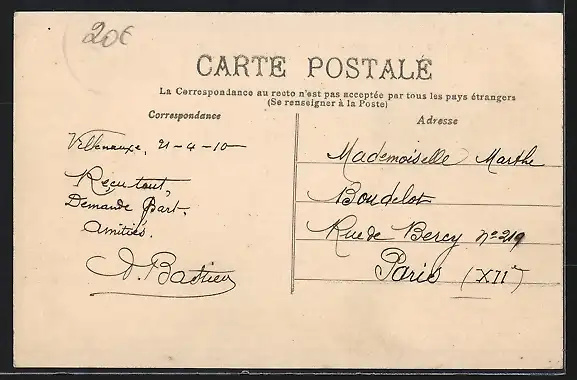 20€
CARTE POSTALE
La Correspondance au recto n'est pas acceptée par tous les pays étrangers
(Se renseigner à la Poste)
Correspondance
Adresse
Villenauxe, 21-4-10
Reçu tout,
Demande part.
Amitiés.
A. Bastien
Mademoiselle Marthe
Boudelot
Rue de Bercy N° 219
Paris (XIIe)